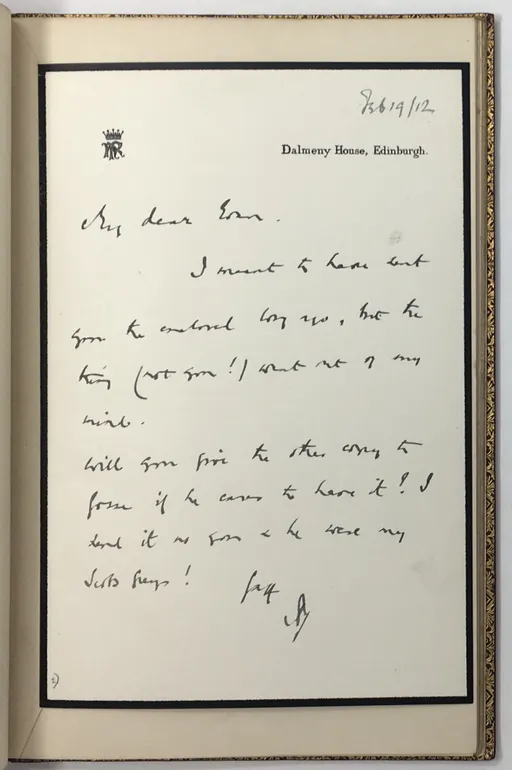 Feb 19/12
Dalmeny House, Edinburgh.
My dear
I meant to have sent
you the enclosed long ago, but the
thing (not you!) went out of my
mind.
Will you give the other copy to
Gosse if he cares to have it? I
send it as you & he were my
Scots Greys!
AR
2)